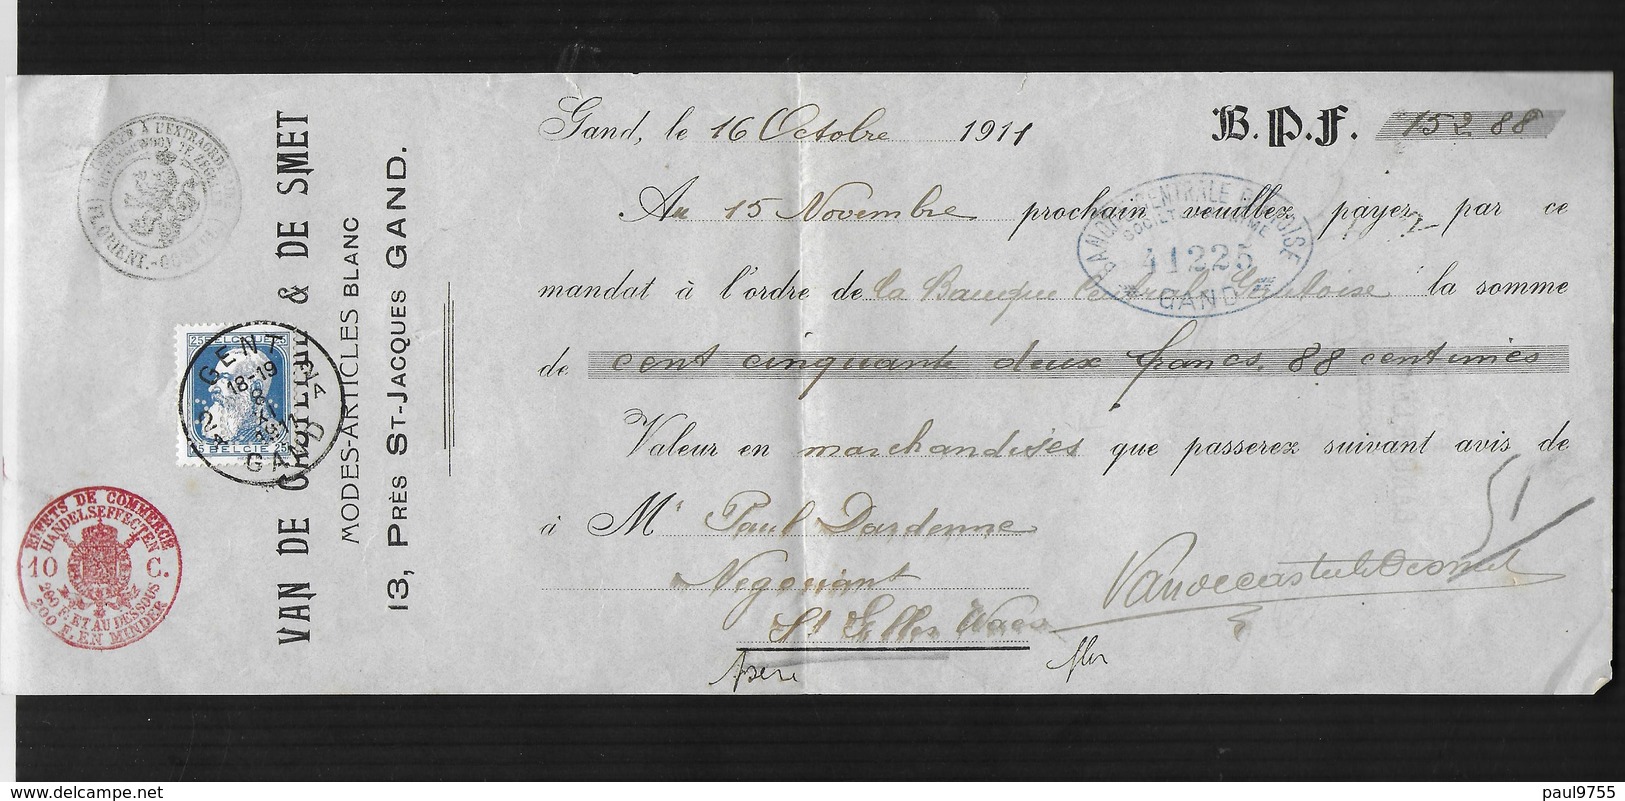 Gand, le 16 Octobre 1911
B.P.F. 152 88
Au 15 Novembre prochain veuillez payer par ce
mandat à l'ordre de la Banque Centrale Gantoise la somme
de cent cinquante deux francs, 88 centimes
Valeur en marchandises que passerez suivant avis de
à Mr Paul Dardenne
Negociant
St Gilles Waes
51
BANQUE CENTRALE GANTOISE
SOCIETE ANONYME
41225
GAND
VAN DE & DE SMET
MODES-ARTICLES BLANC
13, PRÈS ST-JACQUES GAND.
25 BELGIQUE 25
25 BELGIE 25
GENT
18-19
8
XI
1911
GAND
EFFETS DE COMMERCE
HANDELSEFFECTEN
10 C.
200 F. ET AU DESSOUS
200 F. EN MINDER
paul9755